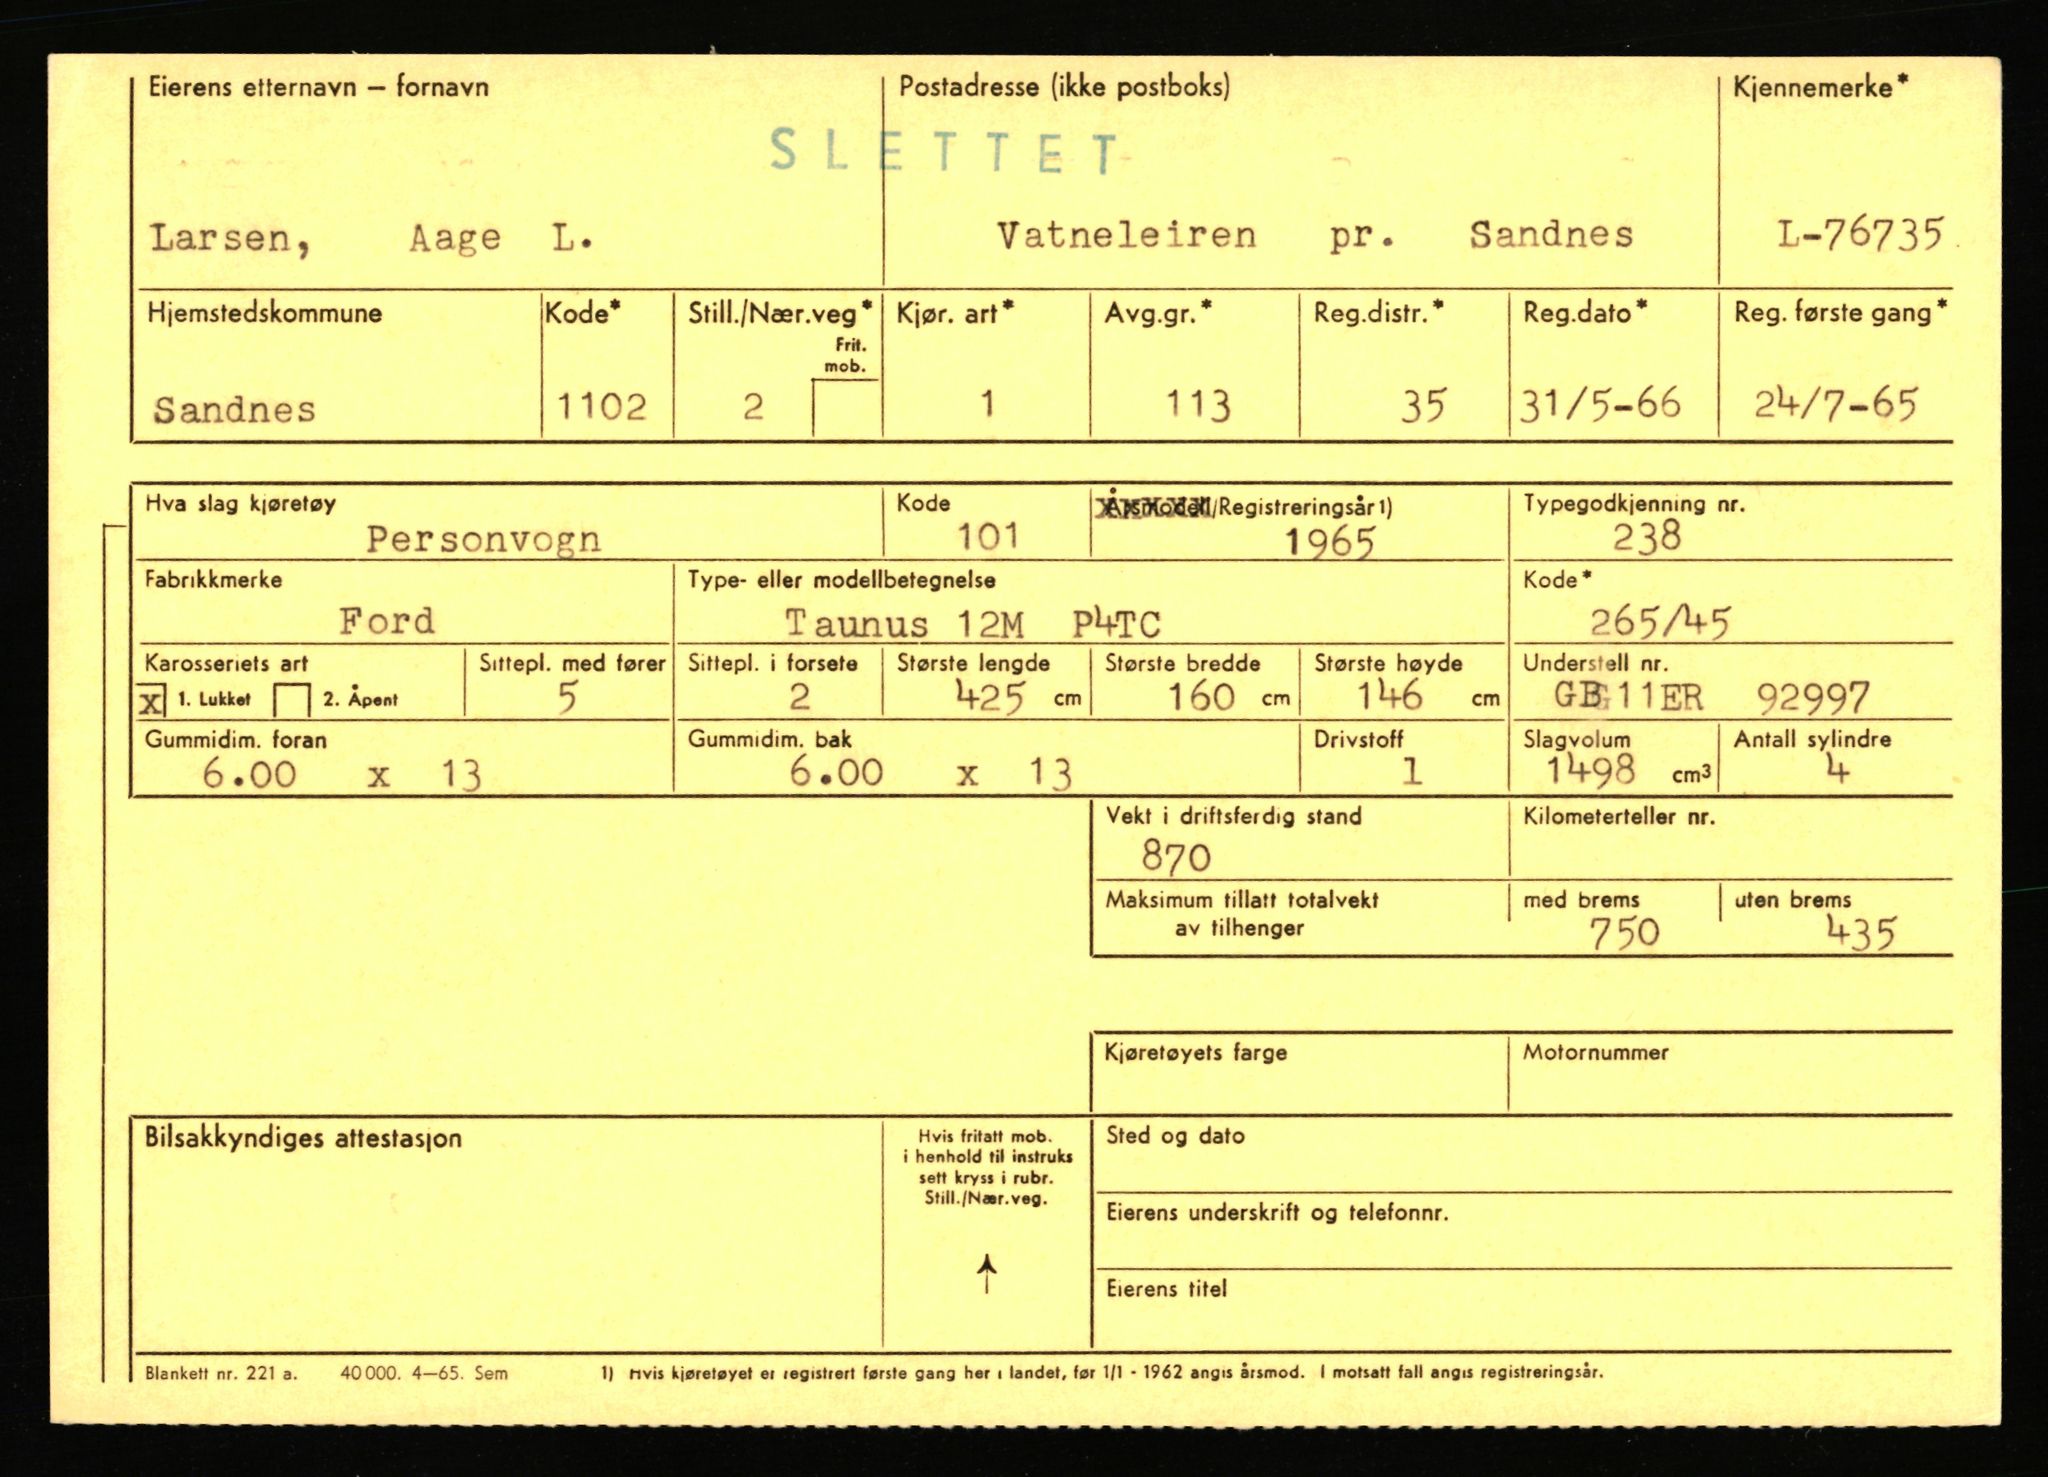 Eierens etternavn – fornavn Postadresse (ikke postboks) Kjennemerke*
SLETTET
Larsen, Aage L. Vatneleiren pr. Sandnes L-76735
Hjemstedskommune Kode* Still./Nær.veg* Kjør. art* Avg.gr.* Reg.distr.* Reg.dato* Reg. første gang*
Frit.
mob.
Sandnes 1102 2 1 113 35 31/5-66 24/7-65
Hva slag kjøretøy Kode Årsmodell/Registreringsår 1) Typegodkjenning nr.
Personvogn 101 1965 238
Fabrikkmerke Type- eller modellbetegnelse Kode*
Ford Taunus 12M P4TC 265/45
Karosseriets art Sittepl. med fører Sittepl. i forsete Største lengde Største bredde Største høyde Understell nr.
x 1. Lukket 2. Åpent 5 2 425 cm 160 cm 146 cm 11ER 92997
Gummidim. foran Gummidim. bak Drivstoff Slagvolum Antall sylindre
6.00 x 13 6.00 x 13 1 1498 cm3 4
Vekt i driftsferdig stand Kilometerteller nr.
870
Maksimum tillatt totalvekt med brems uten brems
av tilhenger 750 435
Kjøretøyets farge Motornummer
Bilsakkyndiges attestasjon
Hvis fritatt mob.
i henhold til instruks
sett kryss i rubr.
Still./Nær.veg.
Sted og dato
Eierens underskrift og telefonnr.
Eierens titel
Blankett nr. 221 a. 40 000. 4–65. Sem 1) Hvis kjøretøyet er registrert første gang her i landet, før 1/1 - 1962 angis årsmod. I motsatt fall angis registreringsår.